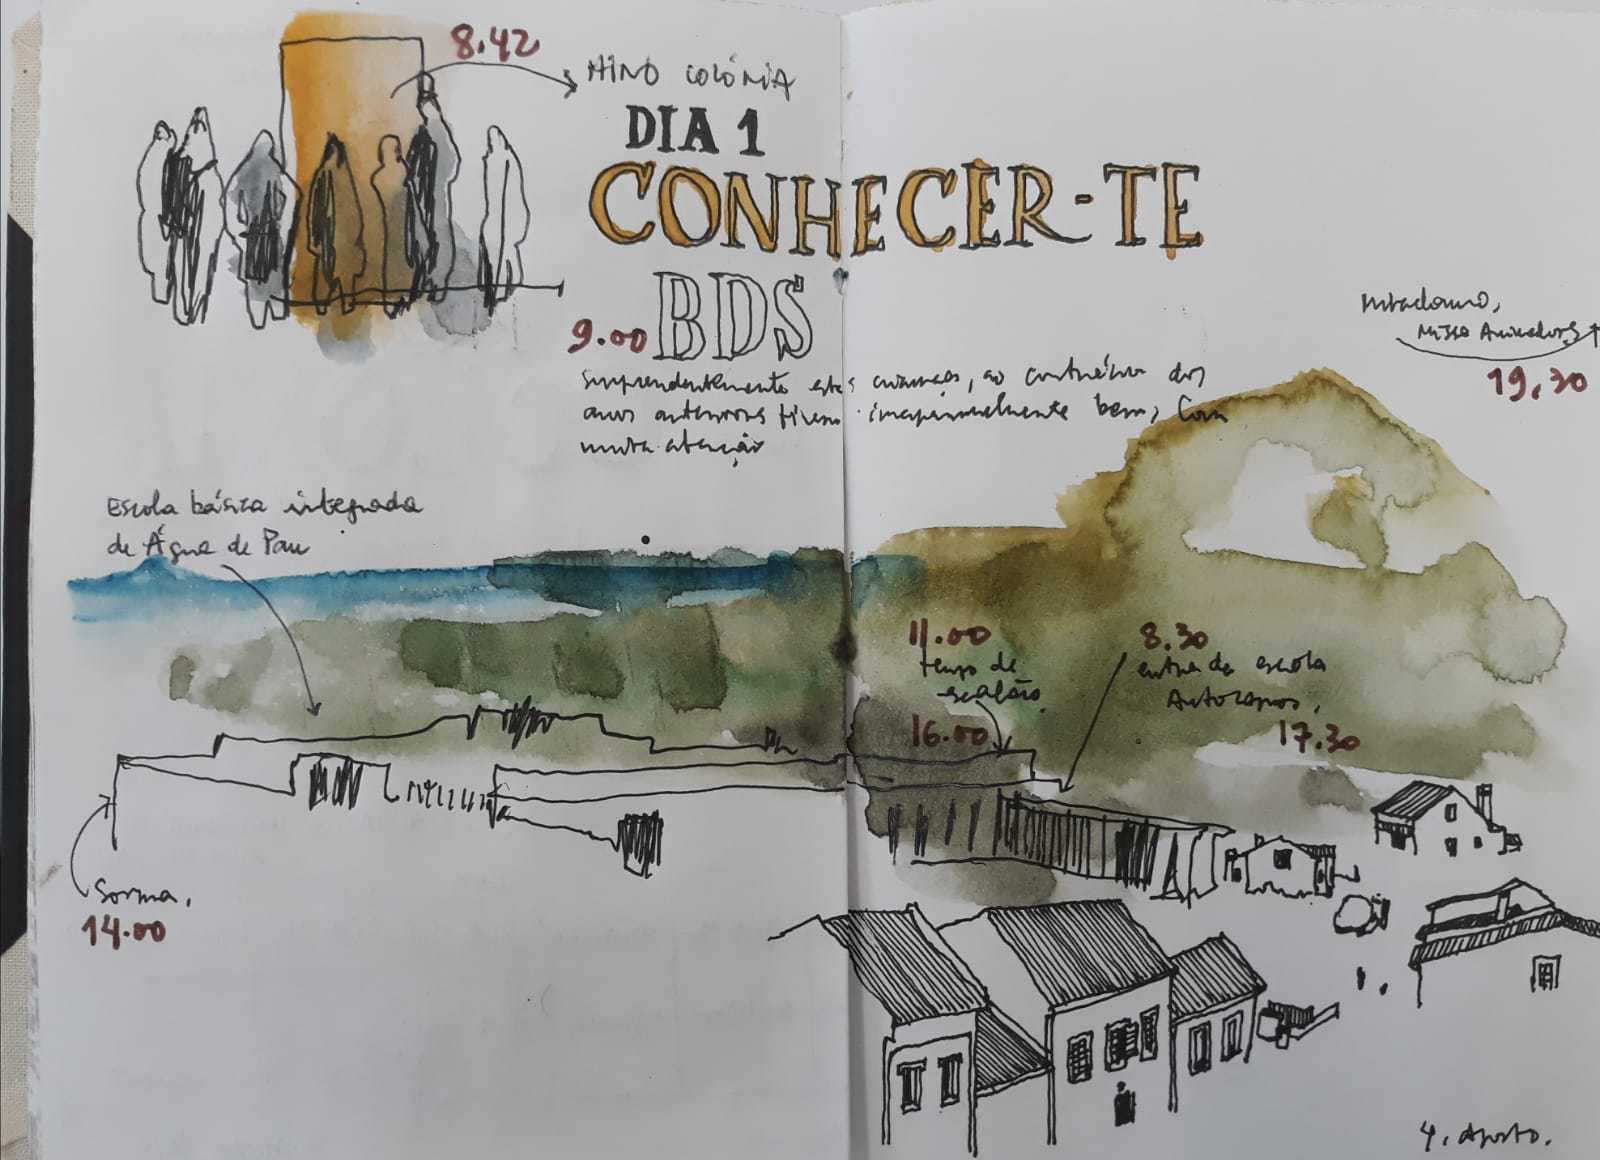 8.42
HINO COLÓNIA
DIA 1
CONHECER-TE
9.00 BDS
surprendentemente estas crianças, ao contrário dos
anos anteriores tiveram imaginavelmente bem, com
muita atenção
Miradouro,
Missa Animadores
19,30
Escola básica integrada
de Água de Pau
11.00
tempo de
escalão
16.00
8.30
entrada escola
Autocarros,
17.30
Sorma,
14.00
4. Agosto.